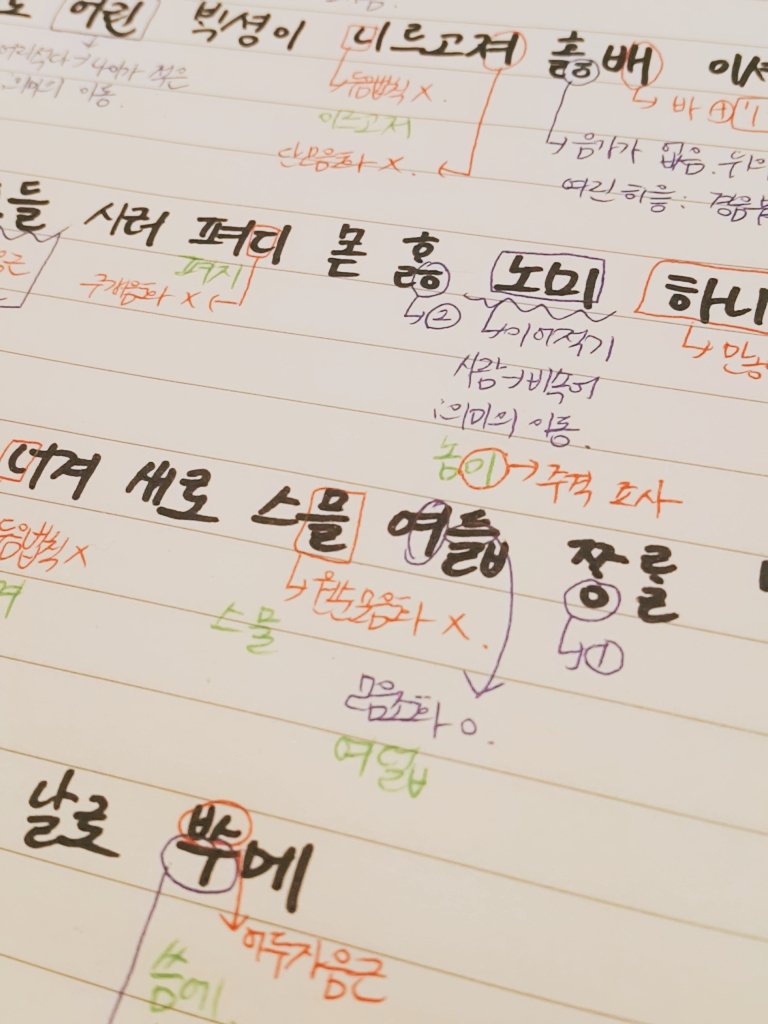 어린 빅셩이 니르고져 홇배 이셔
어리석다→나이가 적은
:의미의 이동.
두음법칙 X.
이르고저
단모음화 X.
바
음가가 없음.
여린히읗:
들 시러 펴디 몯 홇 노미 하니
펴지
구개음화 X
②
이어적기
사람→비속어
:의미의 이동.
놈이→주격 조사
너겨 새로 스믈 여듧 짱를
두음법칙 X
원순모음화 X.
스물
①
모음조화 O.
여덟
날로 뿌메
어두자음군
씀에